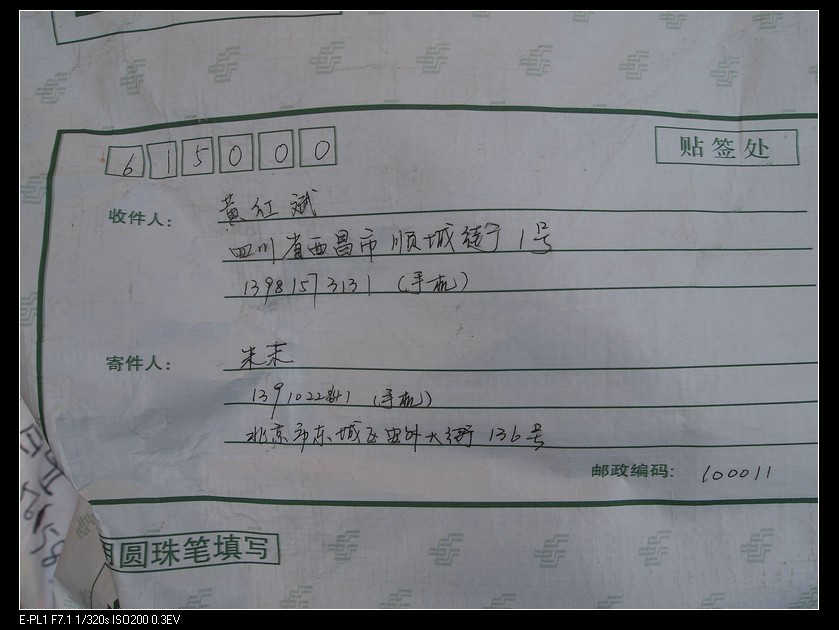 615000
贴签处
收件人: 黄红斌
四川省西昌市顺城街1号
13981573131 (手机)
寄件人: 朱末
(手机)
北京市东城区安外大街136号
邮政编码: 100011
圆珠笔填写
E-PL1 F7.1 1/320s ISO200 0.3EV